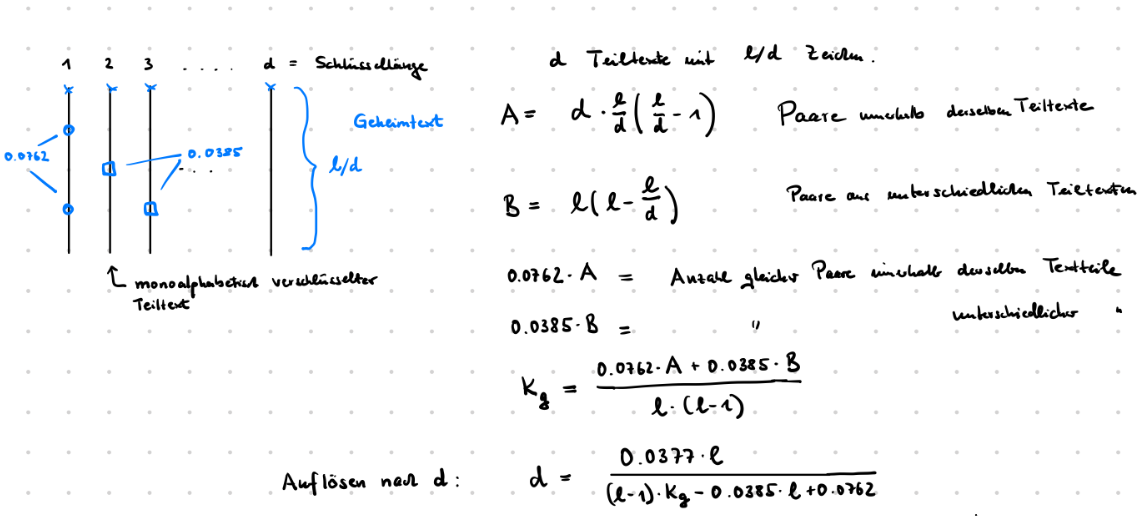 1 2 3 . . . . d = Schlüssellänge
Geheimtext
0.0762
0.0385
. . .
l/d
↑ monoalphabetisch verschlüsselter
Teiltext
d Teiltexte mit l/d Zeichen.
A = d · l/d ( l/d - 1 ) Paare innerhalb derselben Teiltexte
B = l ( l - l/d ) Paare aus unterschiedlichen Teiltexten
0.0762 · A = Anzahl gleicher Paare innerhalb derselben Textteile
0.0385 · B = " unterschiedlicher "
Kg = (0.0762 · A + 0.0385 · B) / (l · (l-1))
Auflösen nach d: d = (0.0377 · l) / ((l-1) · Kg - 0.0385 · l + 0.0762)